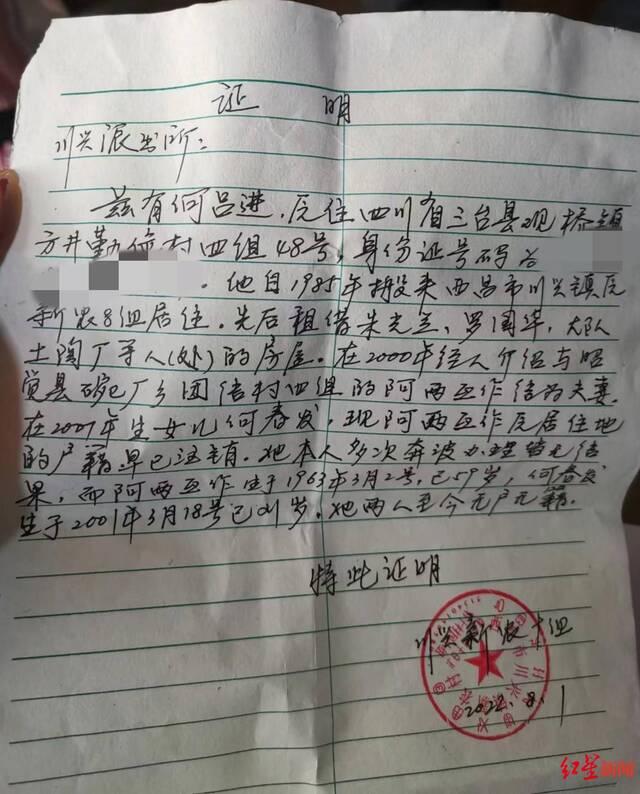 证 明
川兴派出所：
兹有何吕进，原住四川省三台县观桥镇
方井勤俭村四组48号，身份证号码为
他自1985年搬来西昌市川兴镇原
新农8组居住。先后租借朱光兰、罗国华，大队
土陶厂等人(处)的房屋。在2000年经人介绍与昭
觉县碗厂乡团结村四组的阿西五作结为夫妻。
在2001年生女儿何春发，现阿西五作原居住地
的户籍早已注销。她本人多次奔波办理皆无结
果，而阿西五作生于1963年3月2号，已59岁，何春发
生于2001年3月18号已21岁，她两人至今无户无籍。
特此证明
川兴新农十组
2022.8.1
红星新闻